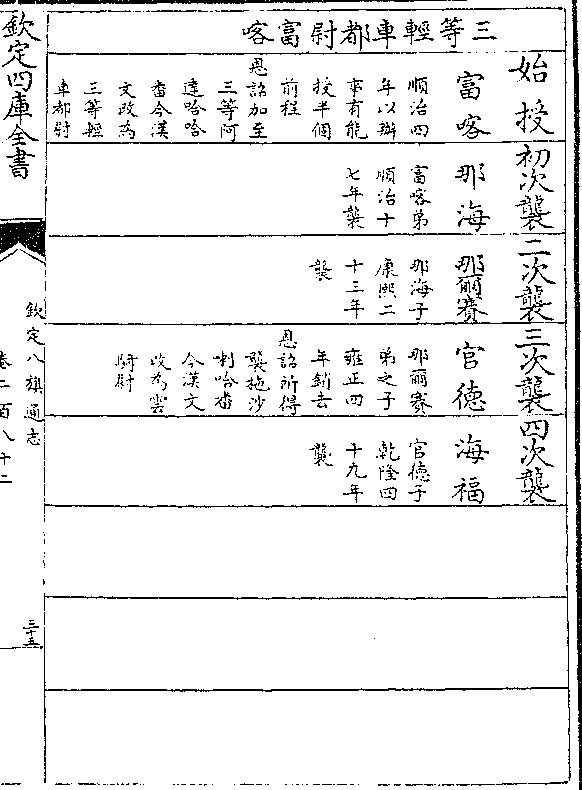 三等輕車都尉富喀
始授
富喀
順治四
年以辦
事有能
授半個
前程
恩詔加至
三等阿
達哈哈
番今漢
文改為
三等輕
車都尉
初次襲
那海
富喀弟
順治十
七年襲
二次襲
那爾賽
那海子
康熙二
十三年
襲
三次襲
官德
那爾賽
弟之子
雍正四
年銷去
恩詔所得
襲拖沙
喇哈番
今漢文
改為雲
騎尉
四次襲
海福
官德子
乾隆四
十九年
襲
欽定四庫全書
欽定八旗通志
卷二百八十二
三十五